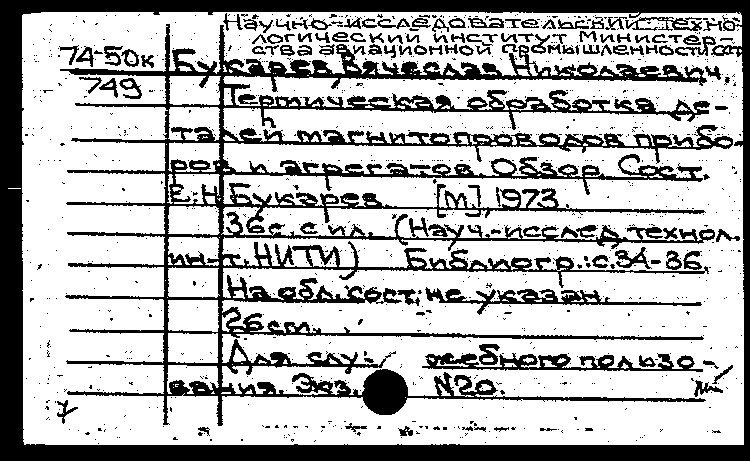 Научно-исследовательский техно-
логический институт Министер-
ства авиационной промышленности
74-50к Букарев, Вячеслав Николаевич.
749 Термическая обработка де-
талей магнитопроводов прибо-
ров и агрегатов. Обзор. Сост.
В.Н. Букарев. [М], 1973.
36с. с ил. (Науч.-исслед. технол.
ин-т. НИТИ) Библиогр.: с.34-36.
На обл. сост. не указан.
26см.
Для служебного пользо-
вания. Экз. №20.